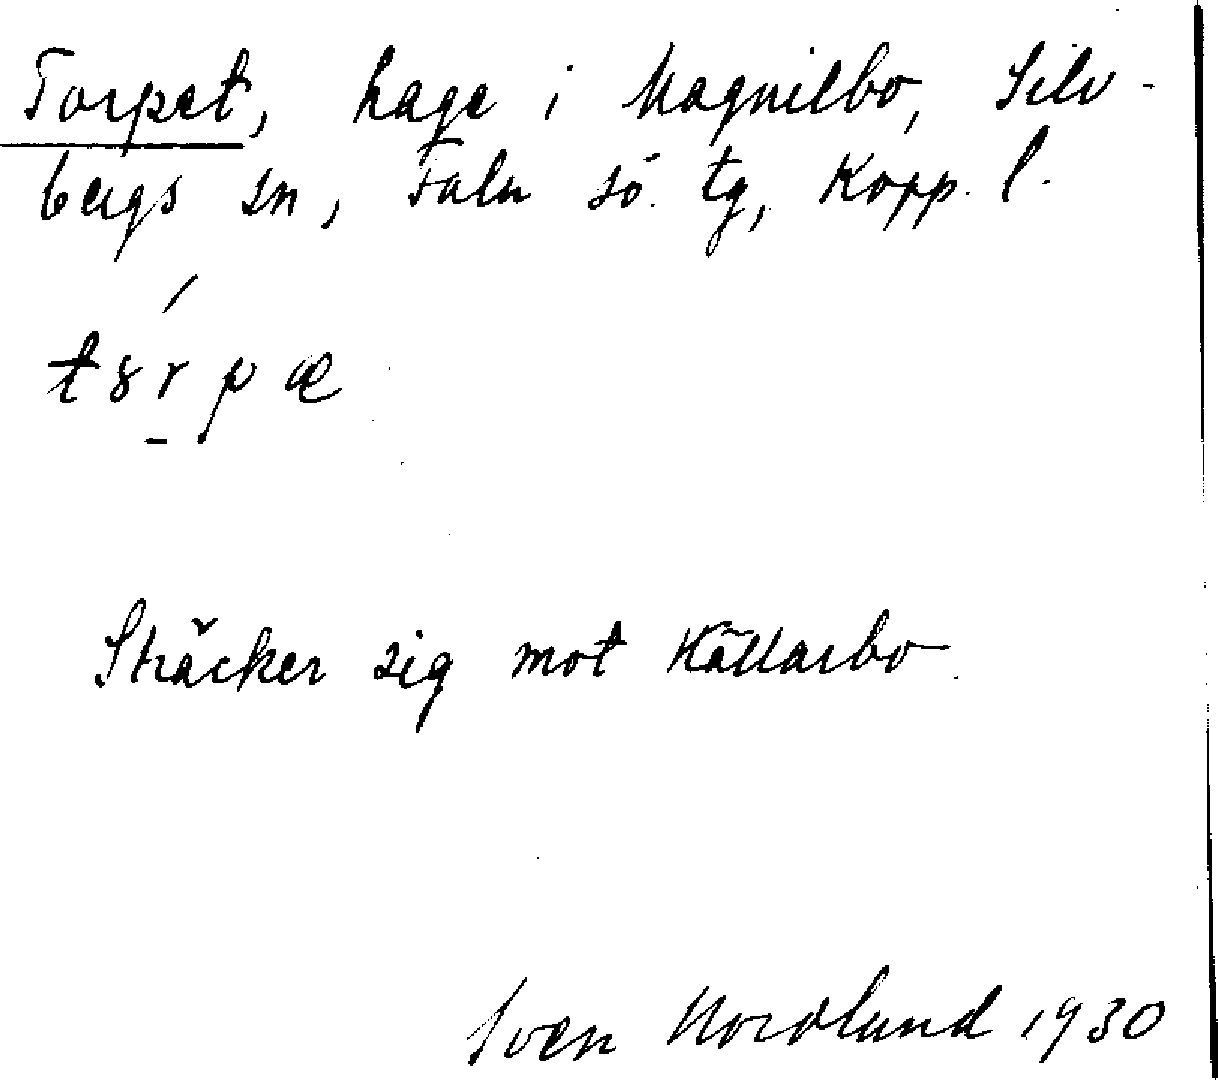 Torpet, hage i Magnilbo, Silv-
bergs sn, Falu sö. tg, Kopp. l.
Sträcker sig mot Källarbo
Sven Nordlund 1930